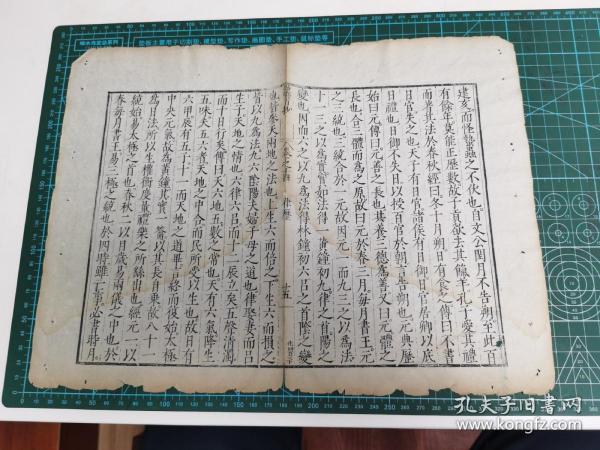 建亥而怪蟄蟲之不伏也自文公閏月不告朔至此百
有餘年莫能正歷數故子貢欲去其餼羊孔子愛其禮
而著其法於春秋經曰冬十月朔日有食之傳曰不書
日官失之也天子有日官諸侯有日御日官居卿以底
日禮也日御不失日以授百官於朝言告朔也元典歷
始曰元傳曰元善之長也共養三德為善又曰元體之
長也合三體而為之原故曰元於春三月每月書王元
之三統也三統合於一元故因元一而九三之以為法
十一三之以為實實如法得一黃鐘初九律之首陽之
變也因而六之以九為法得林鐘初六呂之首陰之變
也皆參天兩地之法也上生六而倍之下生六而損之
皆以九為法九六陰陽夫婦子母之道也律娶妻而呂
生子天地之情也六律六呂而十二辰立矣五聲清濁
而十日行矣傳曰天六地五數之常也天有六氣降生
五味夫五六者天地之中合而民所受以生也故日有
六甲辰有五子十一而天地之道畢言終而復始太極
中央元氣故為黃鐘其實一籥以其長自乘故八十一
為日法所以生權衡度量禮樂之所繇出也經元一以
統始易太極之首也春秋二以目歲易兩儀之中也於
春每月書王易三極之統也於四時雖亡事必書時月
律歷
十五
孔夫子旧書网
www.kongfz.com